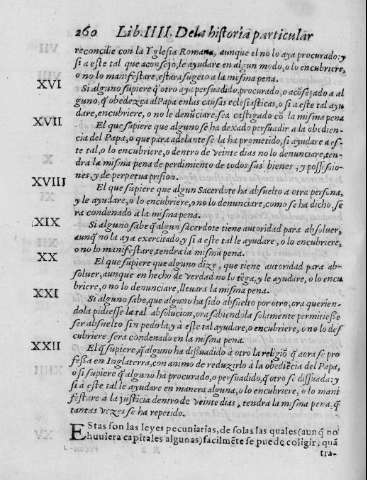 260 Lib. IIII. De la historia particular
reconcilie con la Yglesia Romana, aunque el no lo aya procurado: y
si a este tal que aconsejo, le ayudare en algun modo, o lo encubriere,
o no lo manifestare, estara sugeto a la misma pena.
XVI Si alguno supiere q̃ otro aya persuadido, procurado, o acõsejado a al
guno, q̃ obedezca al Papa en las causas eclesiasticas, o si a este tal ayu
dare, encubriere, o no le denũciare, sea castigado cõ la misma pena
XVII El que supiere que alguno se ha dexado persuadir a la obedien-
cia del Papa, o que para adelante se la ha prometido, si ayudare a es-
te tal, o lo encubriere, o dentro de veinte dias no lo denunciare, ten-
dra la misma pena de perdimiento de todos sus bienes, y possessio-
nes, y de perpetua prision.
XVIII El que supiere que algun Sacerdote ha absuelto a otra persona,
y le ayudare, o lo encubriere, o no lo denunciare, como se ha dicho, se
ra condenado a la misma pena.
XIX Si alguno sabe q̃ algun sacerdote tiene autoridad para absoluer,
aunq̃ no la aya exercitado, y si a este tal ayudare, o lo encubriere,
o no lo manifestare, tendra la misma pena.
XX El que supiere que alguno dize, que tiene autoridad para ab-
soluer, aunque en hecho de verdad no la tẽga, y le ayudare, o lo encu
briere, o no lo denunciare, lleuara la misma pena.
XXI Si alguno sabe, que alguno ha sido absuelto por otro, ora querien-
dola pidiesse la tal absolucion, ora sabiendola solamente permitiesse
ser absuelto sin pedola, y a este tal ayudare, o encubriere, o no lo des
cubriere sera condenado en la misma pena.
XXII El q̃ supiere, q̃ alguno ha dissuadido a otro la religiõ q̃ aora se pro
fessa en Inglaterra, con animo de reduzirlo a la obediẽcia del Papa,
o si supiere q̃ alguno ha procurado, o persuadido, q̃ otro se dissuada: y
si a este tal le ayudare en manera alguna, o lo encubriere, o lo mani
festare a la justicia dentro de veinte dias, tendra la misma pena, q̃
tantas vezes se ha repetido.
Estas son las leyes pecuniarias, de solas las quales (aunq̃ no
huuiera capitales algunas) facilmẽte se puede colegir, quã